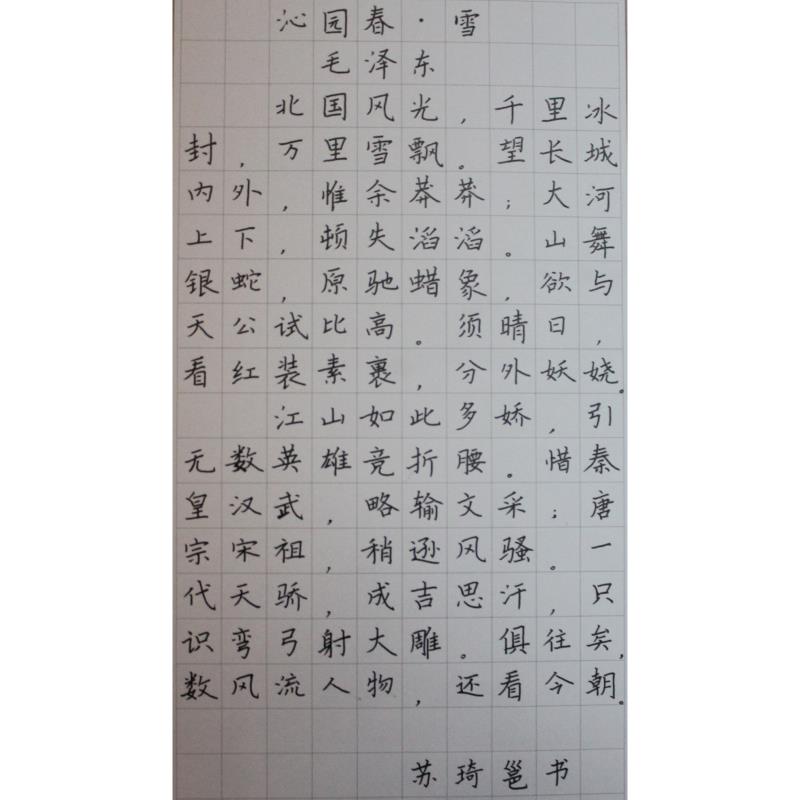 沁园春·雪
毛泽东
北国风光，千里冰
封，万里雪飘。望长城
内外，惟余莽莽；大河
上下，顿失滔滔。山舞
银蛇，原驰蜡象，欲与
天公试比高。须晴日，
看红装素裹，分外妖娆。
江山如此多娇，引
无数英雄竞折腰。惜秦
皇汉武，略输文采；唐
宗宋祖，稍逊风骚。一
代天骄，成吉思汗，只
识弯弓射大雕。俱往矣，
数风流人物，还看今朝。
苏琦邕书